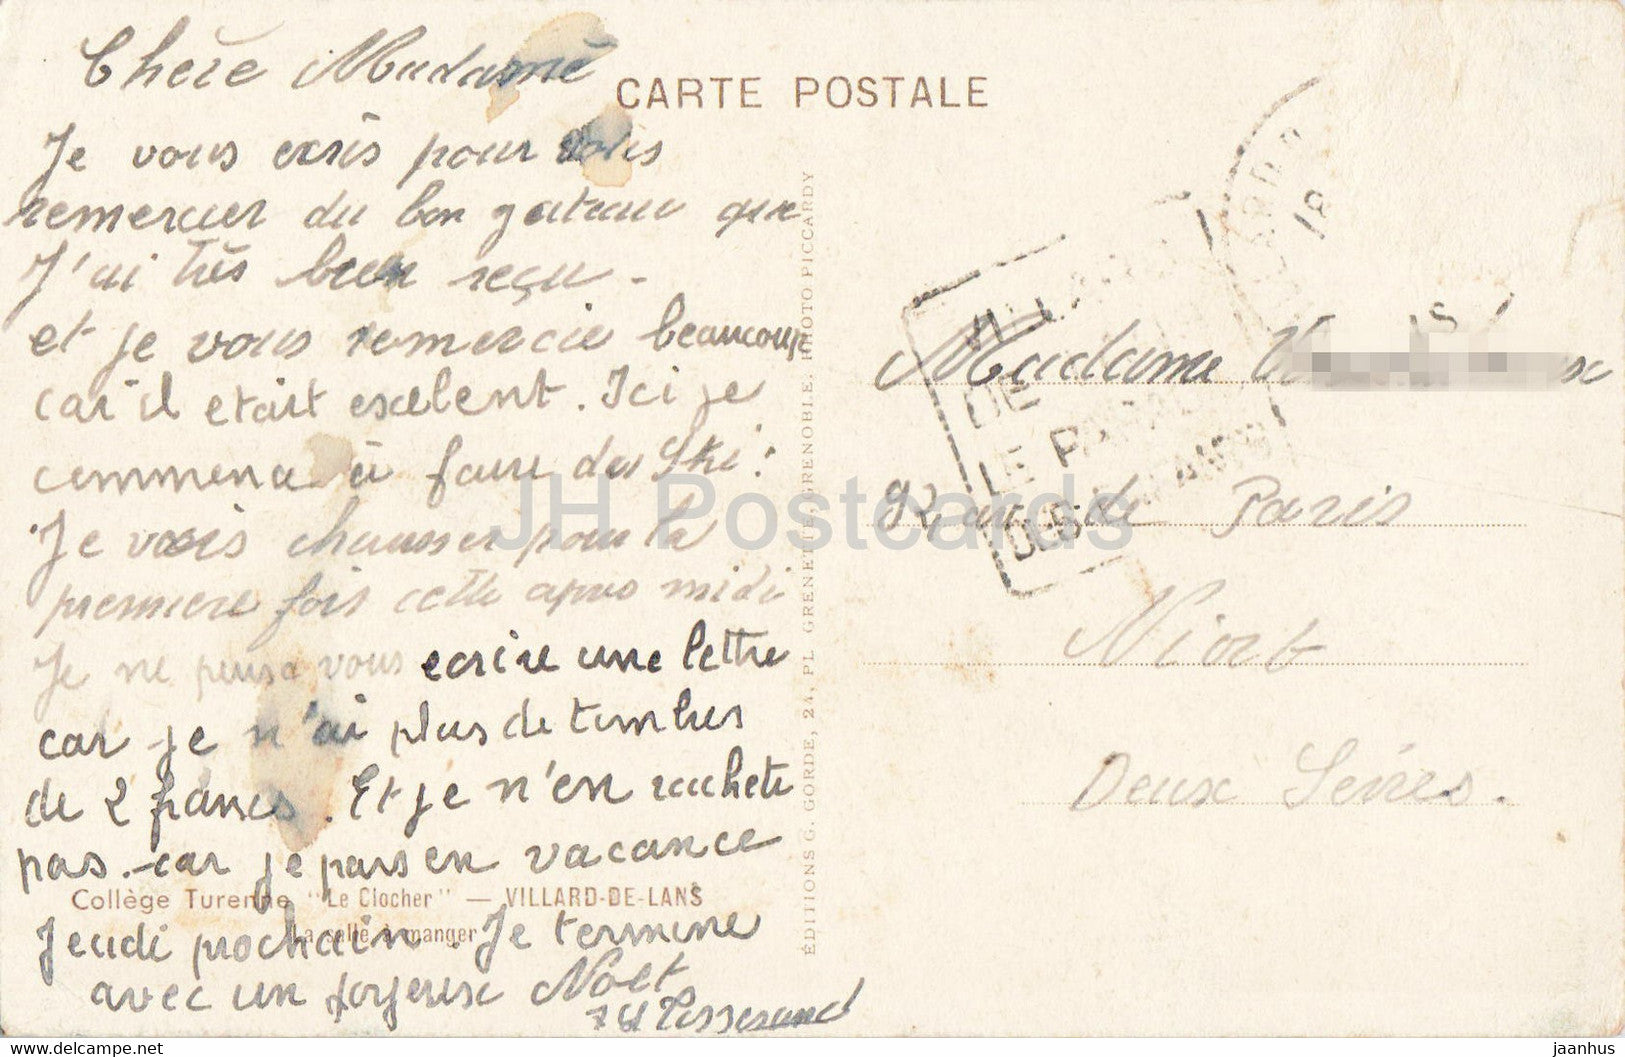 CARTE POSTALE
Chère Madame
Je vous ecris pour vous
remercier du bon gateau que
J'ai très bien reçu -
et je vous remercie beaucoup
car il etait exelent. Ici je
commence à faire des Ski!
Je vais chausser pour la
premiere fois cette apres midi
Je ne peus vous ecrire une lettre
car je n'ai plus de timbres
de 2 francs. Et je n'en rachete
pas. car je pars en vacance
Jeudi prochain. Je termine
avec un joyeux Noel
Tisserand
Collège Turenne "Le Clocher" — VILLARD-DE-LANS
La salle à manger
ÉDITIONS G. GORDE, 24, PL. GRENETTE, GRENOBLE. PHOTO PICCARDY
VILLARD
DE
LE PARADIS
DES ENFANTS
Madame
92 rue de Paris
Niort
Deux Sèvres.
JH Postcards
https://www.delcampe.net
jaanhus